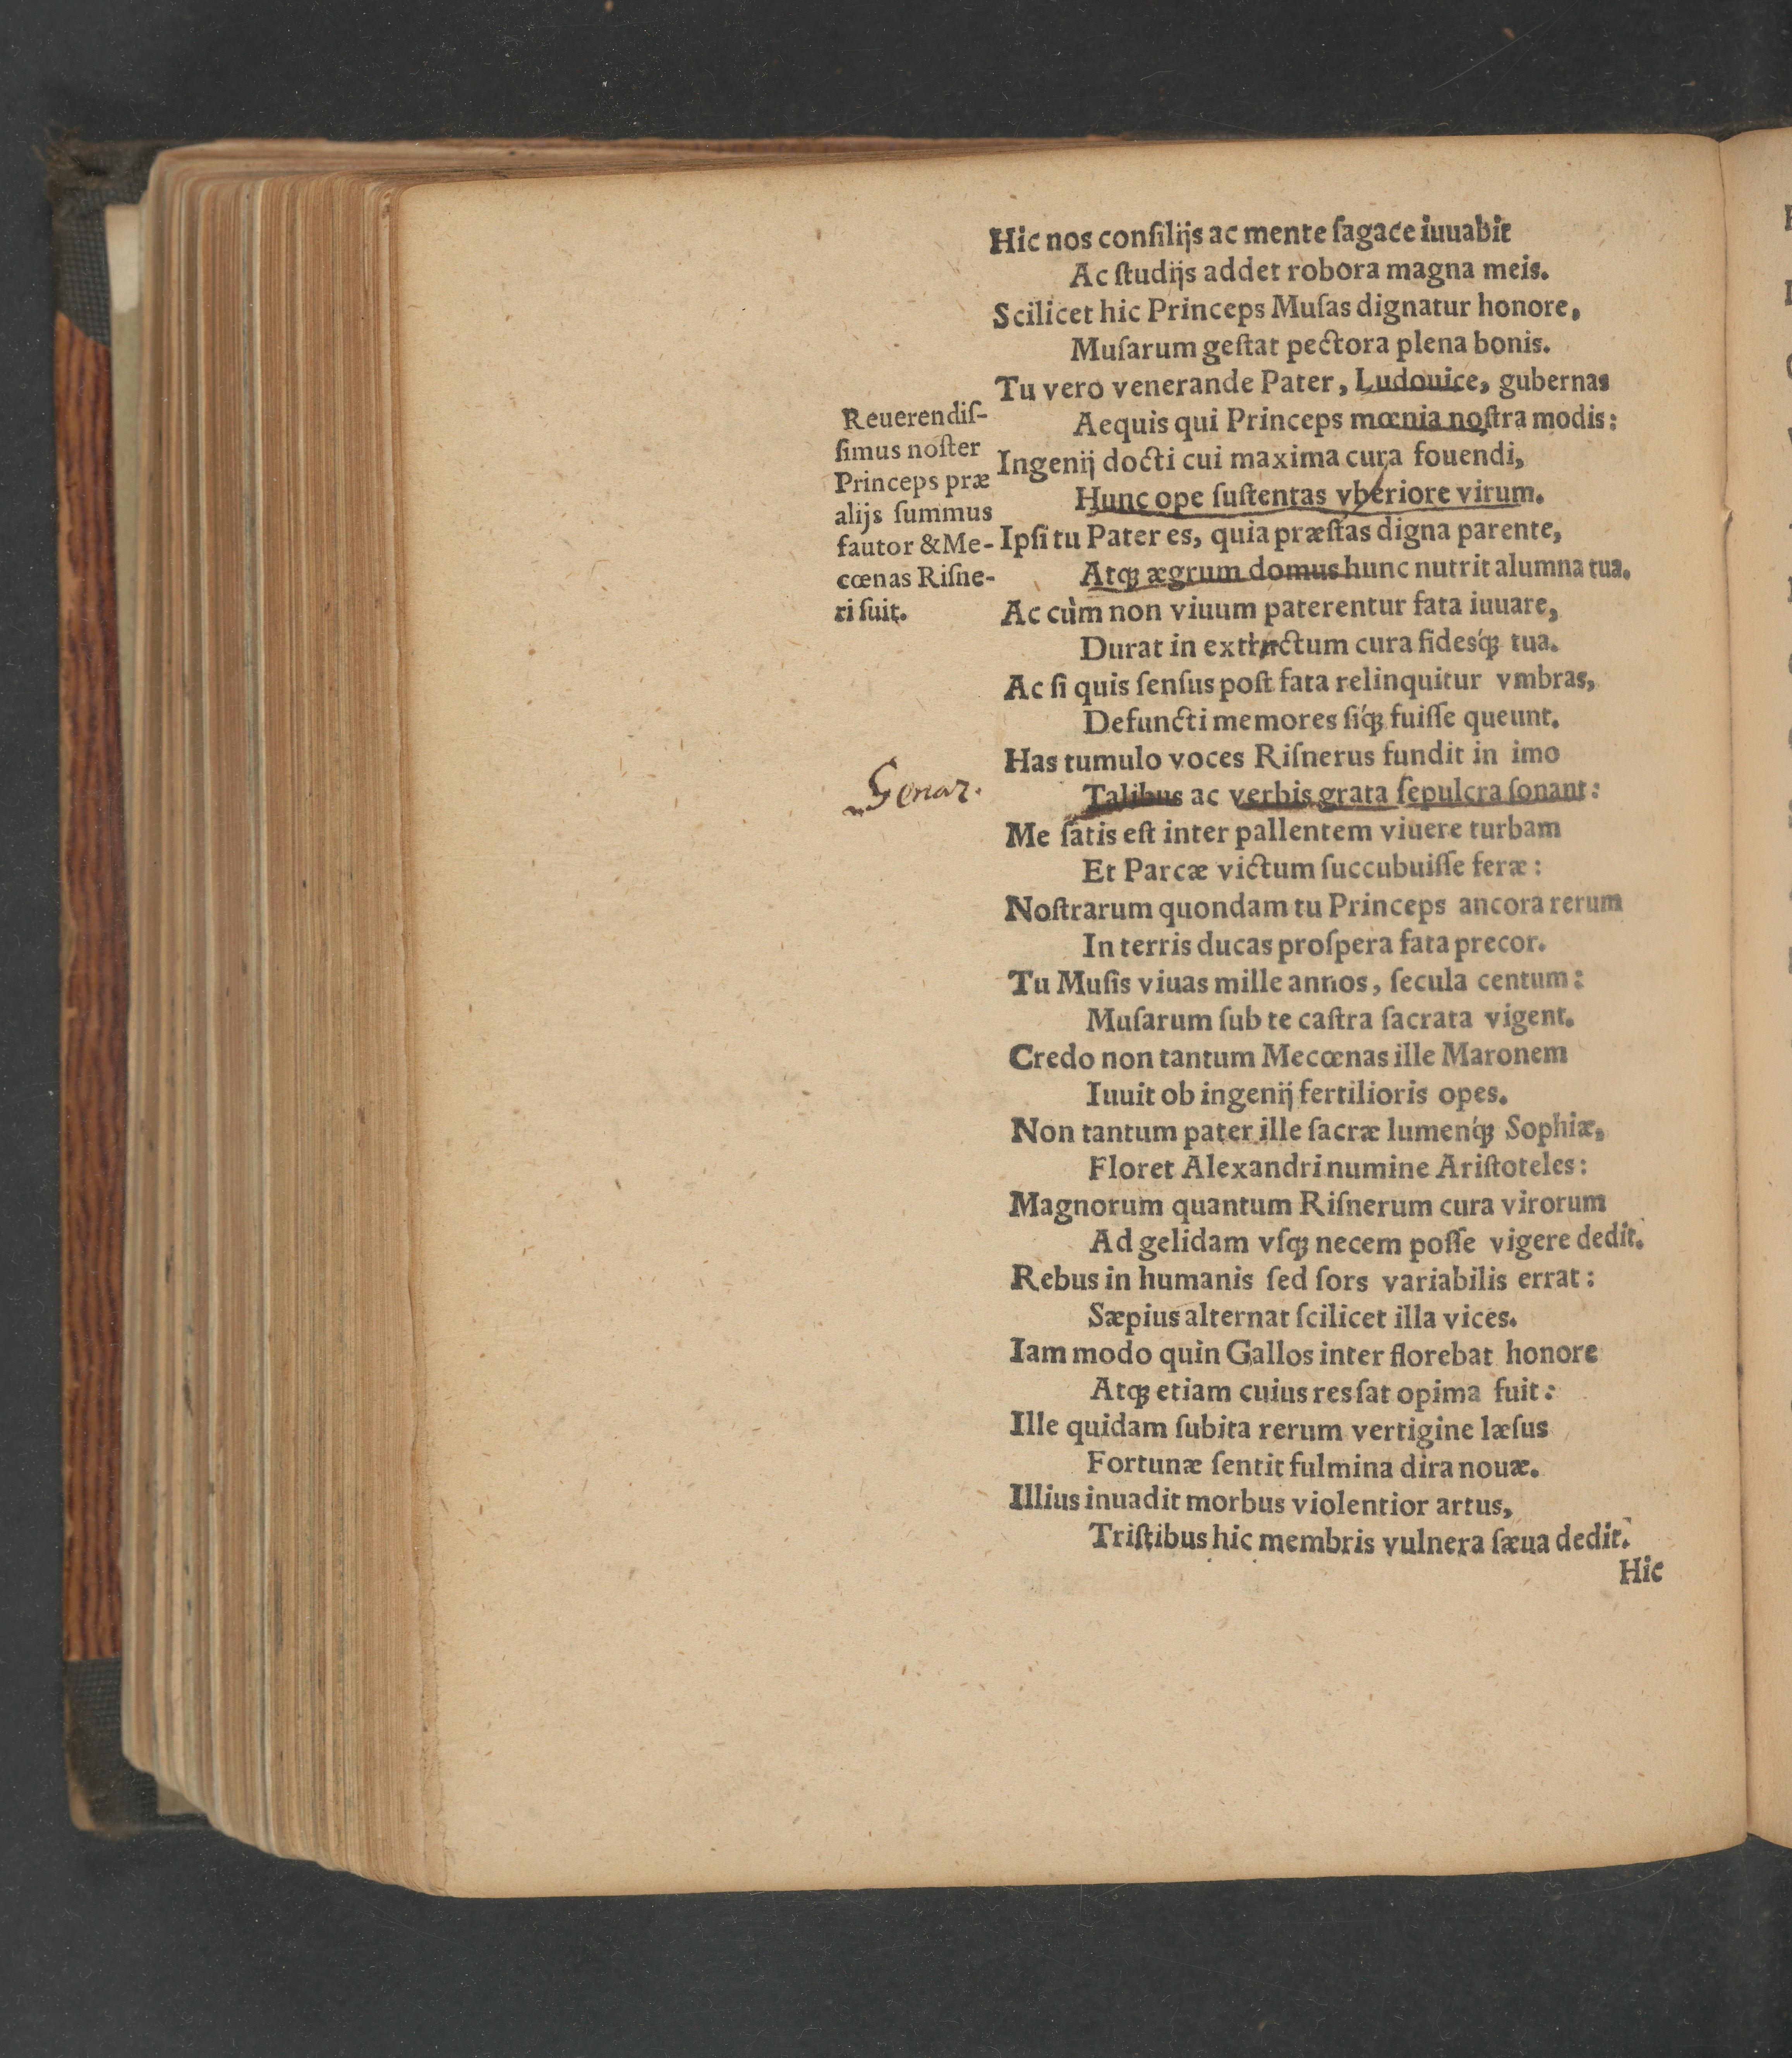 Hic nos conſilijs ac mente ſagace iuuabit
Ac ſtudijs addet robora magna meis.
Scilicet hic Princeps Muſas dignatur honore,
Muſarum geſtat pectora plena bonis.
Tu vero venerande Pater, Ludouice, gubernas
Aequis qui Princeps mœnia noſtra modis:
Ingenij docti cui maxima cura fouendi,
Hunc ope ſuſtentas vberiore virum.
Ipſi tu Pater es, quia præſtas digna parente,
Atqꝫ ægrum domus hunc nutrit alumna tua.
Ac cùm non viuum paterentur fata iuuare,
Durat in extinctum cura fidesq́ꝫ tua.
Ac ſi quis ſenſus poſt fata relinquitur vmbras,
Defuncti memores ſiq́ꝫ fuiſſe queunt.
Has tumulo voces Riſnerus fundit in imo
Talibus ac verbis grata ſepulcra ſonant:
Me ſatis eſt inter pallentem viuere turbam
Et Parcæ victum ſuccubuiſſe feræ:
Noſtrarum quondam tu Princeps ancora rerum
In terris ducas proſpera fata precor.
Tu Muſis viuas mille annos, ſecula centum:
Muſarum ſub te caſtra ſacrata vigent.
Credo non tantum Mecœnas ille Maronem
Iuuit ob ingenij fertilioris opes.
Non tantum pater ille ſacræ lumenq́ꝫ Sophiæ,
Floret Alexandri numine Ariſtoteles:
Magnorum quantum Riſnerum cura virorum
Ad gelidam vſqꝫ necem poſſe vigere dedit.
Rebus in humanis ſed ſors variabilis errat:
Sæpius alternat ſcilicet illa vices.
Iam modo quin Gallos inter florebat honore
Atqꝫ etiam cuius res ſat opima fuit:
Ille quidam ſubita rerum vertigine læſus
Fortunæ ſentit fulmina dira nouæ.
Illius inuadit morbus violentior artus,
Triſtibus hic membris vulnera ſæua dedit.
Hic
Reuerendiſ-
ſimus noſter
Princeps præ
alijs ſummus
fautor & Me-
cœnas Riſne-
ri fuit.